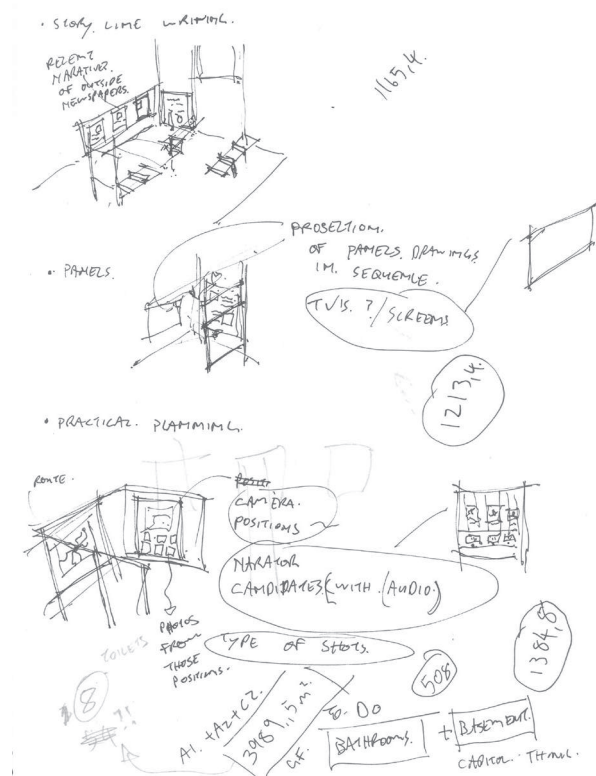 • STORY LINE WRITING.
RECENT
NARATIVES.
OF OUTSIDE
NEWSPAPERS.
1165,4.
PROJECTION.
OF PANELS DRAWINGS
IN. SEQUENCE.
• PANELS.
TV'S. ?/SCREENS
1213,4.
• PRACTICAL. PLANNING.
ROUTE.
CAMERA.
POSITIONS
NARATOR
CANDIDATES (WITH. (AUDIO.)
PHOTOS
FROM
THOSE
POSITIONS.
TYPE OF SHOTS.
TOILETS
8
?!
1384,8
508
A1. + A2 + C2.
3989,15 m².
G.F.
TO. DO
BATHROOMS. + BASEMENT.
CAPITOL.